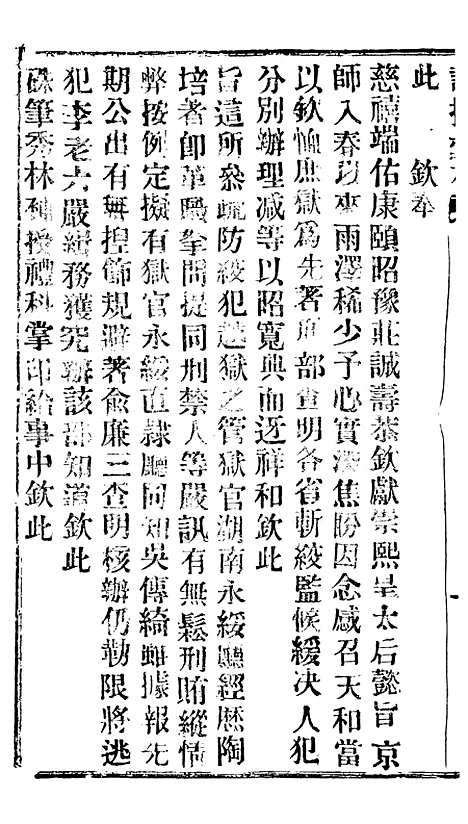 此　　欽奉
慈禧端佑康頤昭豫莊誠壽恭欽獻崇熙皇太后懿旨京
師入春以來雨澤稀少予心實深焦勝因念感召天和當
以欽恤庶獄爲先著刑部查明各省斬絞監候緩决人犯
分別辦理减等以昭寬典而迓祥和欽此
旨這所叅疏防絞犯越獄之管獄官湖南永綏廳經歷陶
培者卽革職拏問提同刑禁人等嚴訊有無鬆刑賄縱情
弊按例定擬有獄官永綏直隸廳同知吳傳綺雖據報先
期公出有無揑飾規避著俞廉三查明核辦仍勒限將逃
犯李老六嚴緝務獲究辦該部知道欽此
硃筆秀林補授禮科掌印給事中欽此